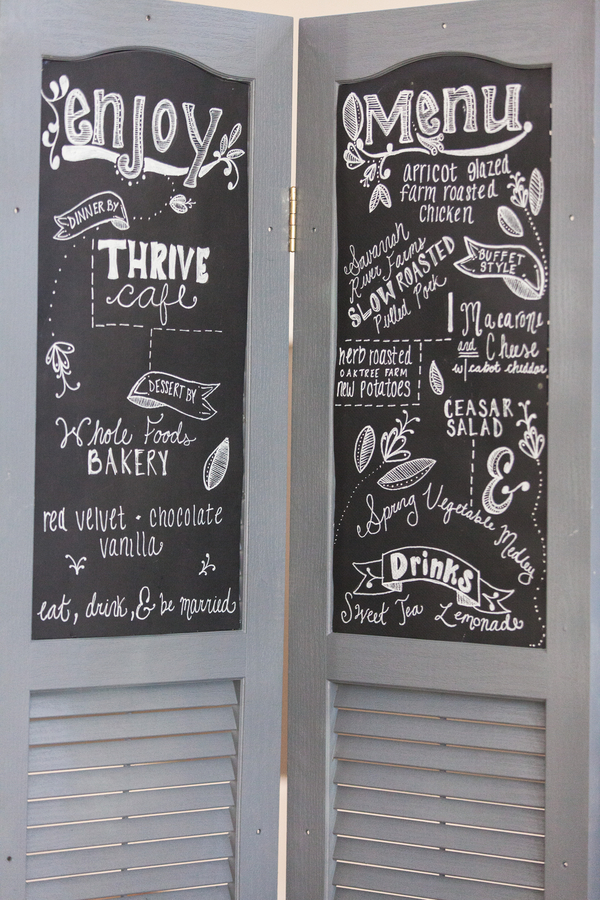 enjoy
DINNER BY
THRIVE
cafe
DESSERT BY
Whole Foods
BAKERY
red velvet • chocolate
vanilla
eat, drink, & be married
Menu
apricot glazed
farm roasted
chicken
Savannah
River Farms
SLOW ROASTED
Pulled Pork
BUFFET
STYLE
Macaroni
and Cheese
w/ cabot cheddar
herb roasted
OAKTREE FARM
new POTATOES
CEASAR
SALAD
&
Spring Vegetable Medley
Drinks
Sweet Tea Lemonade